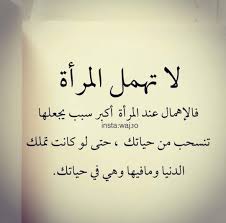 لا تهمل المرأة
فالإهمال عند المرأة أكبر سبب يجعلها
insta:waj.o
تنسحب من حياتك ، حتى لو كانت تملك
الدنيا ومافيها وهي في حياتك.